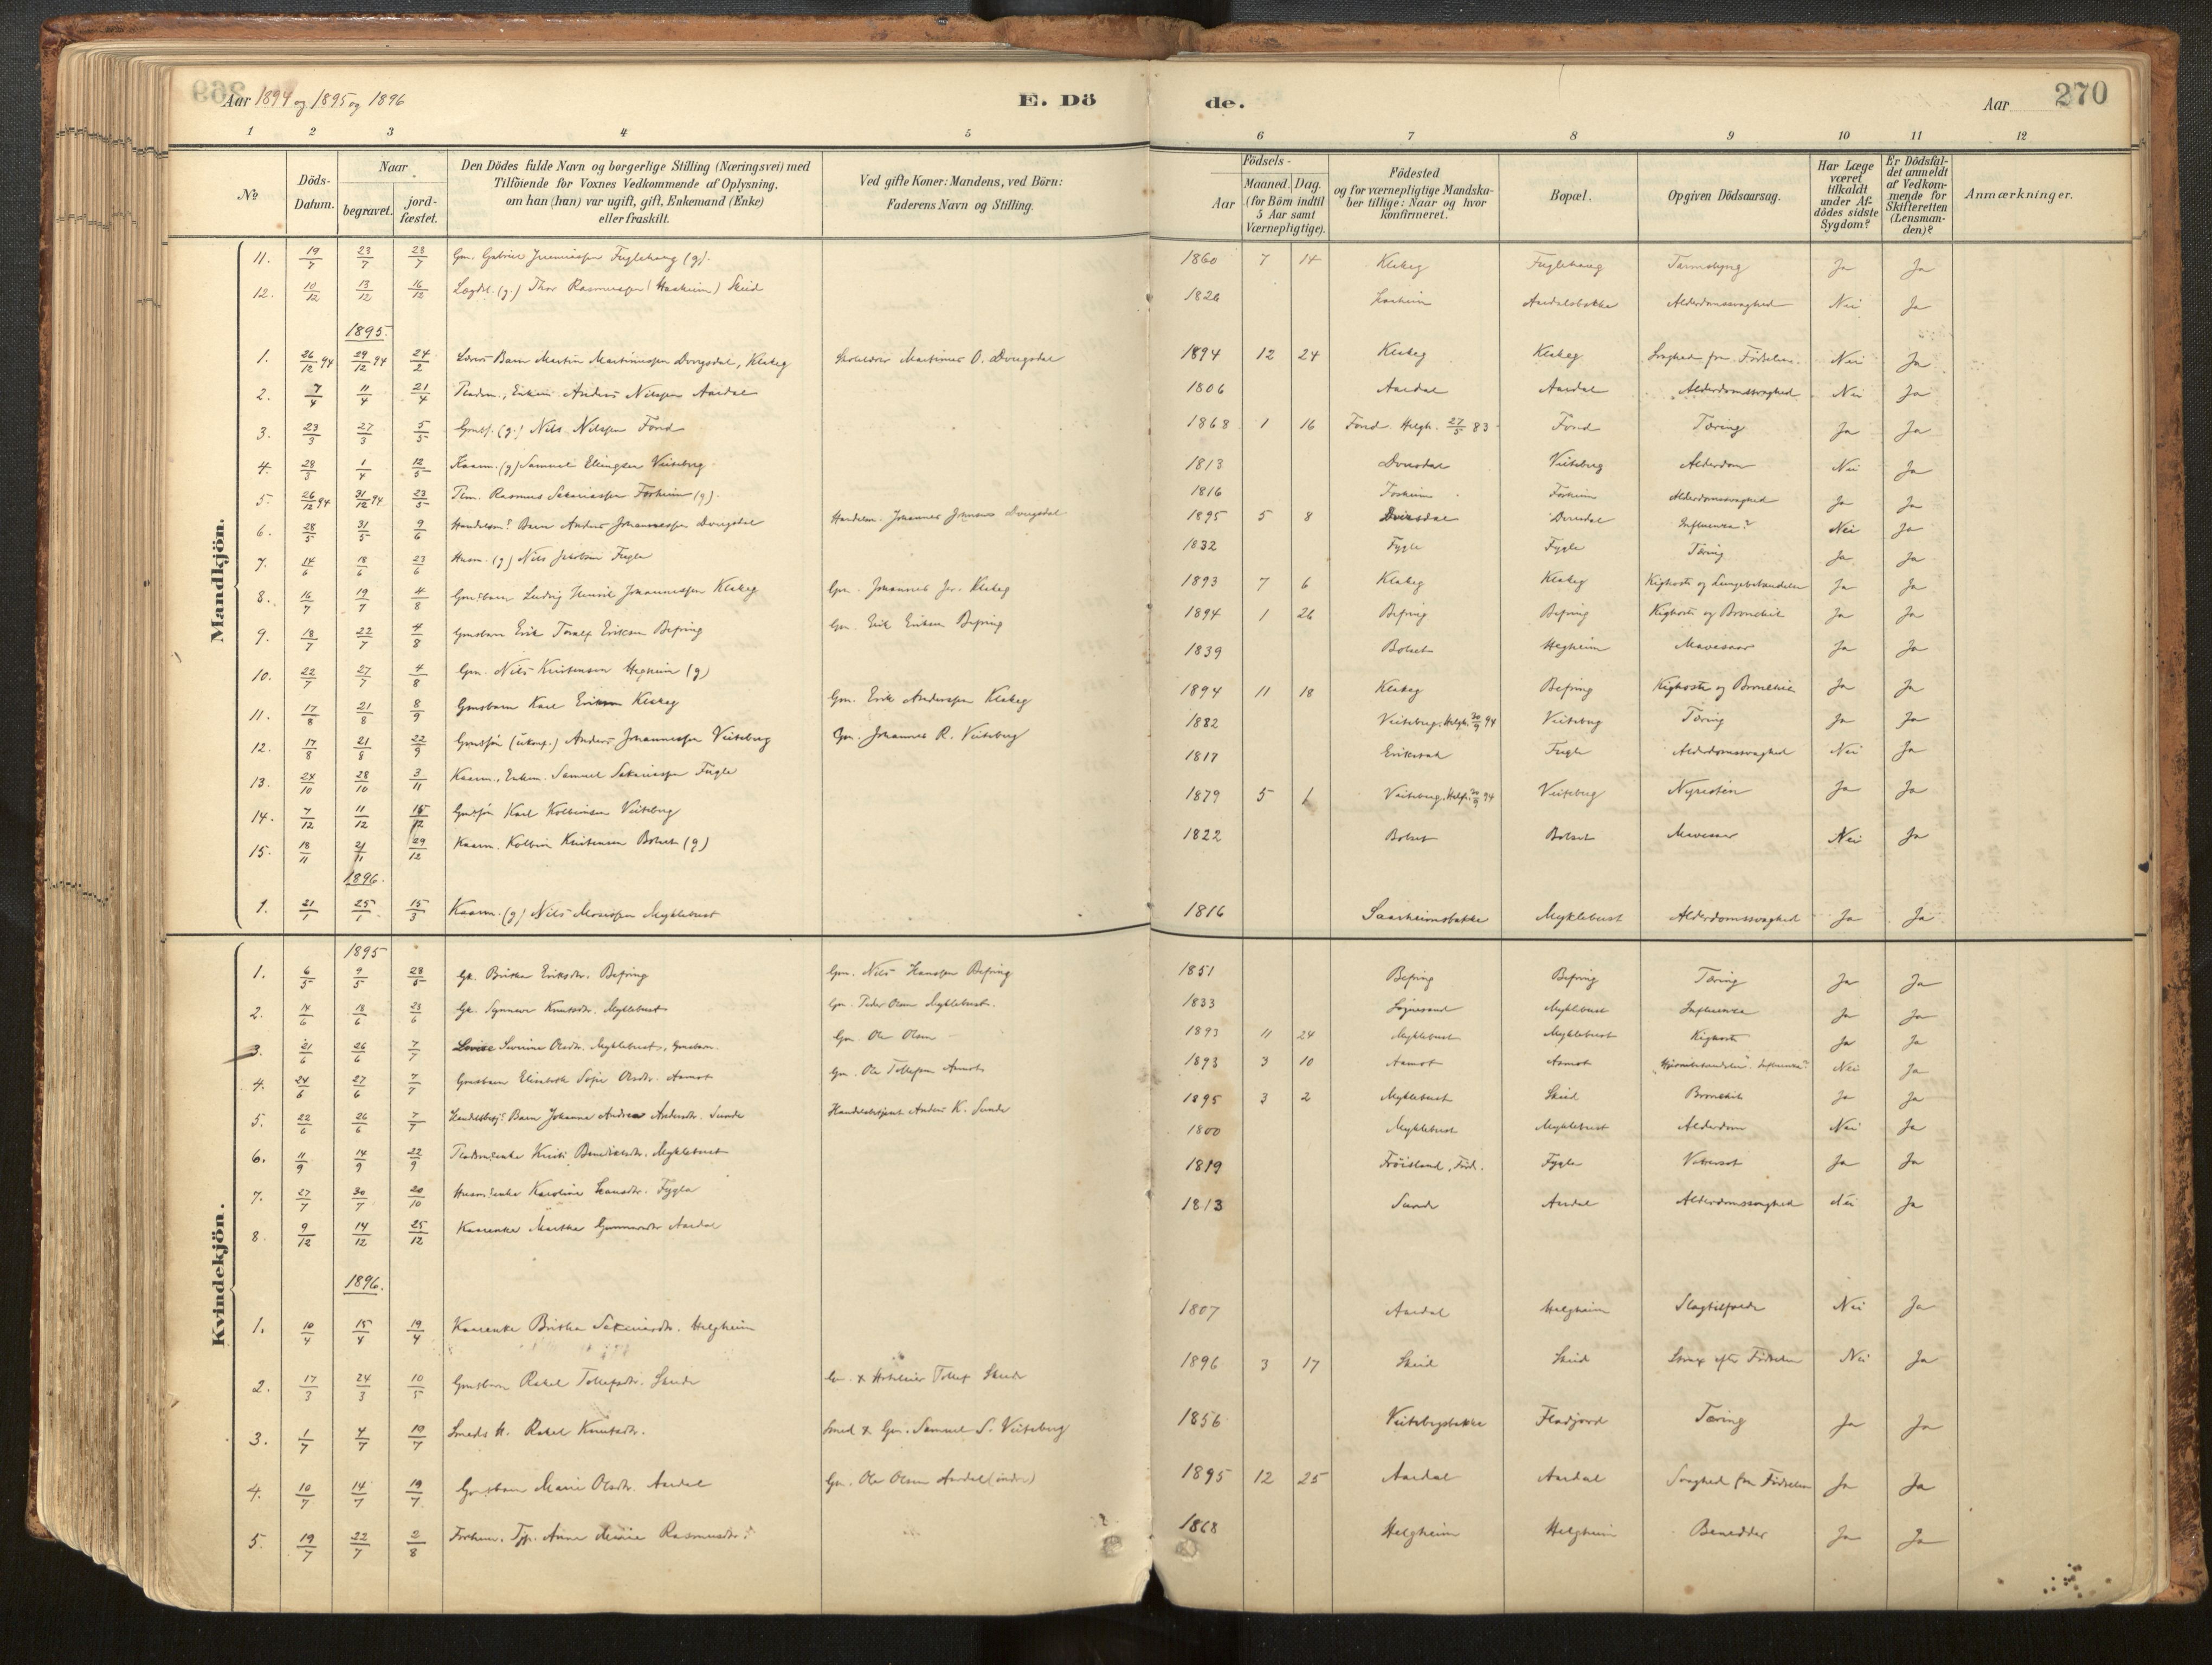 Aar 1894 og 1895 og 1896
E. Dö
de.
Aar
270
1 2 3 4 5 6 7 8 9 10 11 12
No
Döds-Datum.
Naar
begravet.
jord-fæstet.
Den Dödes fulde Navn og borgerlige Stilling (Næringsvei) med
Tilföiende for Voxnes Vedkommende af Oplysning,
om han (hun) var ugift, gift, Enkemand (Enke)
eller fraskilt.
Ved gifte Koner: Mandens, ved Börn:
Faderens Navn og Stilling.
Födsels-
Aar
Maaned. Dag.
(for Börn indtil
5 Aar samt
Værnepligtige).
Födested
og for værnepligtige Mandska-
ber tillige: Naar og hvor
konfirmeret.
Bopæl.
Opgiven Dödsaarsag.
Har Læge
været
tilkaldt
under Af-
dödes sidste
Sygdom?
Er Dödsfal-
det anmeldt
af Vedkom-
mende for
Skifteretten
(Lensman-
den)?
Anmærkninger.
Mandkjön.
11. 19/7 23/7 23/7 Gm. Gabriel Fuglehaug (g). 1860 7 14 Klakeg Fuglehaug Ja Ja
12. 10/12 13/12 16/12 Lægdsl. (g.) Thor Rasmussen (Haaheim) Skeid 1826 Aardalsbakke Alderdomssvaghed Nei Ja
1895.
1. 26/12 94 29/12 94 24/2 Lærers Barn Martin Martinussen Dvergsdal, Klakeg Skolelærer Martinus O. Dvergsdal 1894 12 24 Klakeg Klakeg Svaghed fra Födselen. Nei Ja
2. 7/4 11/4 21/4 Anders Nilssen Aardal 1806 Aardal Aardal Alderdomssvaghed Nei Ja
3. 23/3 27/3 5/5 (g.) Nils Nilssen Fond 1868 1 16 Fond. Helgh. 27/5 83 Fond Tæring Ja Ja
4. 28/3 1/4 12/5 Kaarm. (g) Samuel Ellingsen Veiteberg 1813 Veiteberg Alderdom Nei Ja
5. 26/12 94 31/12 94 23/5 Rasmus Sakariassen Förheim (g). 1816 Förheim Förheim Alderdomssvaghed Ja Ja
6. 28/5 31/5 9/6 Handelsm? Barn Anders Johannessen Dvergsdal Handelsm. Johannes Dvergsdal 1895 5 8 Influenza? Nei Ja
7. 14/6 18/6 23/6 Husm. (g) Nils Jakobsen Fugle 1832 Fygle Fygle Tæring Ja Ja
8. 16/7 19/7 4/8 Gmsbarn Ludvig Henrik Johannessen Klakeg Gm. Johannes Jr. Klakeg 1893 7 6 Klakeg Klakeg Kighoste og Lungebetændelse Ja Ja
9. 18/7 22/7 4/8 Gmsbarn Erik Toralf Eriksen Befring Gm. Erik Eriksen Befring 1894 1 26 Befring Befring Kighoste og Bronchit Ja Ja
10. 22/7 27/7 4/8 Gm. Nils Kristensen Hegheim (g) 1839 Bolset Hegheim Mavesaar Ja Ja
11. 17/8 21/8 8/9 Gmsbarn Karl Eriksen Klakeg Gm. Erik Anderssen Klakeg 1894 11 18 Klakeg Befring Kighoste og Bronchit Ja Ja
12. 17/8 21/8 22/9 Gmssön (ukonf.) Anders Johannessen Veiteberg Gm. Johannes R. Veiteberg 1882 Veiteberg. Helgh. 30/9 94 Veiteberg Tæring Ja Ja
13. 24/10 28/10 3/11 Kaarm., Enkem. Samuel Sakariassen Fugle 1817 Fugle Alderdomssvaghed Nei Ja
14. 7/12 11/12 15/12 Gmssön Karl Kolbeinsen Veiteberg 1879 5 1 Veiteberg. Helgh. 30/9 94 Veiteberg Nyresten Ja Ja
15. 18/11 21/11 29/12 Kaarm. Kolbein Kristensen Bolset (g) 1822 Bolset Bolset Mavesaar Nei Ja
1896.
1. 21/1 25/1 15/3 Kaarm. (g) Nils Monssen Myklebust 1816 Saarheimsbakke Myklebust Alderdomssvaghed Ja Ja
Kvindekjön.
1895
1. 6/5 9/5 23/5 Gk. Brithe Eriksdtr. Befring Gm. Nils Hanssen Befring 1851 Befring Befring Tæring Ja Ja
2. 14/6 18/6 23/6 Gk. Synneve Knutsdtr. Myklebust Gm. Peder Olsen Myklebust. 1833 Sognesand Myklebust Influenza Ja Ja
3. 21/6 26/6 7/7 Severine Olsdtr. Myklebust, Gmsbarn. Gm. Ole Olsen 1893 11 24 Myklebust Myklebust Kighoste Ja Ja
4. 24/6 27/6 7/7 Gmsbarn Elisabeth Sofie Olsdtr. Aamot Gm. Ole Tollefsen Aamot 1893 3 10 Aamot Aamot Hjernebetændelse? Influenza? Nei Ja
5. 22/6 26/6 7/7 Handelsbetj? Barn Johanna Andrea Andersdtr. Sunde Handelsbetjent Anders K. Sunde 1895 3 2 Myklebust Skeid Bronchit Ja Ja
6. 11/9 14/9 22/9 Kristi Benediktsdtr. Myklebust 1800 Myklebust Myklebust Alderdom Nei Ja
7. 27/7 30/7 20/10 Husm.enke Karoline Hansdtr. Fygle 1819 Fröisland, Förde. Fygle Vatersot Ja Ja
8. 9/12 14/12 25/12 Kaarenke Marthe Gunnarsdtr. Aardal 1813 Sunde Aardal Alderdomssvaghed Nei Ja
1896.
1. 10/4 15/4 19/4 Kaarenke Brithe Sakariasdtr. Helgheim 1807 Aardal Helgheim Slagtilfælde Nei Ja
2. 17/3 24/3 10/5 Gmsbarn Rakel Tollefsdtr. Skeide Gm. & Hoteleier Tollef Skeide 1896 3 17 Skeid Skeid Strax efter Födselen Nei Ja
3. 1/7 4/7 19/7 Smeds H. Rakel Knutsdtr. Smed & Gm. Samuel S. Veiteberg 1856 Veitebergsbakke Fladjord Tæring Ja Ja
4. 10/7 14/7 19/7 Gmsbarn Marie Olsdtr. Aardal Gm. Ole Olsen Aardal (indre) 1895 12 25 Aardal Aardal Svaghed fra Födselen Ja Ja
5. 19/7 22/7 2/8 Anne Marie Rasmusdtr. 1868 Helgheim Helgheim Benedder Ja Ja